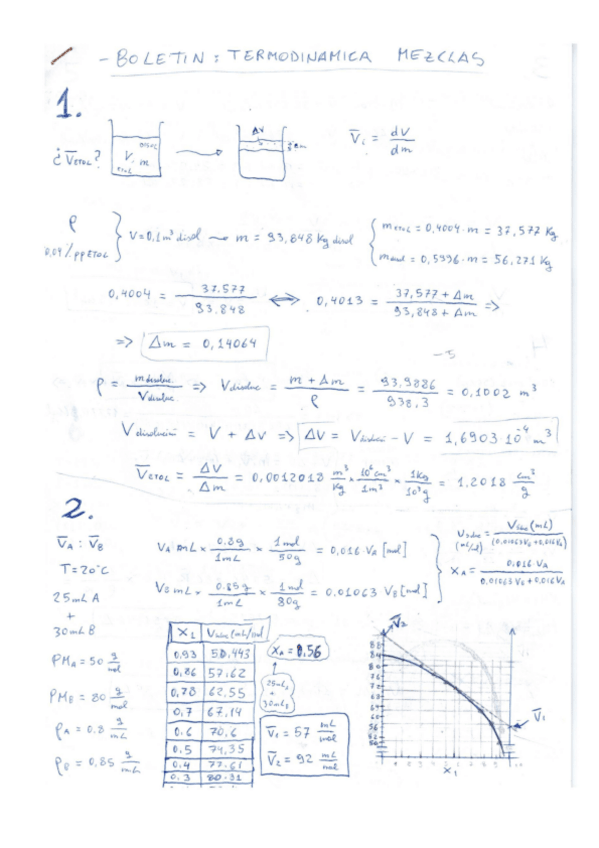 - BOLETIN: TERMODINAMICA MEZCLAS
1.
¿V̅ETOL? V, m ETOL ΔV V̅i = dV/dm
ρ
0,04% pp ETOL } V = 0,1 m³ disol → m = 93,848 Kg disol { mETOL = 0,4004 · m = 37,577 Kg
= 0,5996 · m = 56,271 Kg
0,4004 = 37.577/93.848 ⟺ 0,4013 = (37,577 + Δm)/(93,848 + Δm) =>
=> Δm = 0,14064
ρ = m/V => V = (m + Δm)/ρ = 93,9886/938,3 = 0,1002 m³
V = V + ΔV => ΔV = V - V = 1,6903 10⁻⁴ m³
V̅ETOL = ΔV/Δm = 0,0012018 m³/Kg × 10⁶cm³/1m³ × 1Kg/10³g = 1,2018 cm³/g
2.
V̅A : V̅B
T = 20°C
25 mL A
+
30 mL B
PMA = 50 g/mol
PMB = 80 g/mol
ρA = 0.8 g/mL
ρB = 0,85 g/mL
VA mL × 0.8g/1mL × 1mol/50g = 0.016 · VA [mol]
VB mL × 0.85g/1mL × 1mol/80g = 0.01063 VB [mol]
(mL/mol) = (mL)/(0.01063 VB + 0.016 VA)
XA = 0.016 VA/(0.01063 VB + 0.016 VA)
X1
0.93 50,443
0,86 57,62
0,78 62,55
0,7 67,14
0.6 70,6
0,5 74,35
0.4 77.61
0.3 80.31
XA = 0.56
25mL
+
30mL
V̅1 = 57 mL/mol
V̅2 = 92 mL/mol
V̅2
V̅1
X1